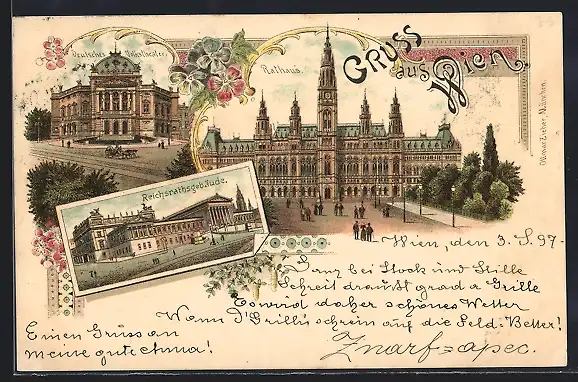 Deutsches Volkstheater.
Rathaus.
Gruss aus Wien.
Reichsrathsgebäude.
Ottmar Zieher, München.
Wien, den 3. S. 97.
Ganz bei Stock und Stille
Schreit draußt grad a Grille
Es wird daher schönes Wetter
Wann d'Grilln schrein auf die Feld-Better!
Einen Gruss an
meine gute